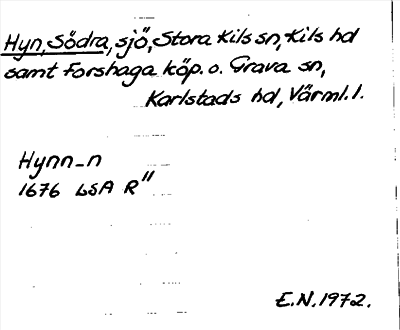 Hyn, Södra, sjö, Stora Kils sn, Kils hd
samt Forshaga köp. o. Grava sn,
Karlstads hd, Värml. l.
Hynn-n
1676 LSA R"
E.N. 1972.